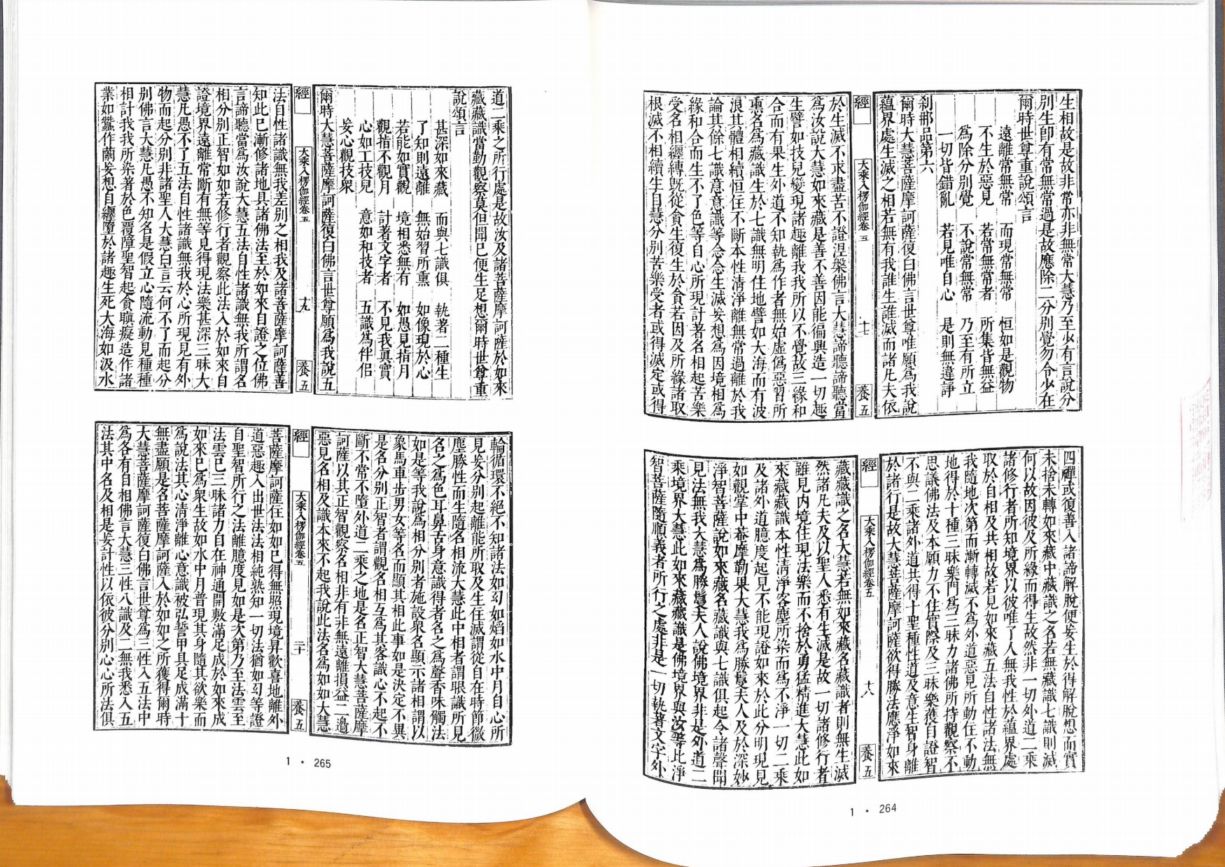 生相故是故非常亦非無常大慧乃至少有言說分
別生即有常無常過是故應除二分別覺勿令少在
爾時世尊重說頌言
遠離常無常　而現常無常　恒如是觀物
不生於惡見　若常無常者　所集皆無益
為除分別覺　不說常無常　乃至有所立
一切皆錯亂　若見唯自心　是則無違諍
剎那品第六
爾時大慧菩薩摩訶薩復白佛言世尊唯願為我說
蘊界處生滅之相若無有我誰生誰滅而諸凡夫依
經　大乘入楞伽經卷五　養五
於生滅不求盡苦不證涅槃佛言大慧諦聽諦聽當
為汝說大慧如來藏是善不善因能徧興造一切趣
生譬如技兒變現諸趣離我我所以不覺故三緣和
合而有果生外道不知執為作者無始虛偽惡習所
熏名為藏識生於七識無明住地譬如大海而有波
浪其體相續恒住不斷本性清淨離無常過離於我
論其餘七識意意識等念念生滅妄想為因境相為
緣和合而生不了色等自心所現計著名相起苦樂
受名相纏縛既從貪生復生於貪若因及所緣諸取
根滅不相續生自慧分別苦樂受者或得滅定或得
四禪或復善入諸諦解脫便妄生於得解脫想而實
未捨未轉如來藏中藏識之名若無藏識七識則滅
何以故因彼及所緣而得生故然非一切外道二乘
諸修行者所知境界以彼唯了人無我性於蘊界處
取於自相及共相故若見如來藏五法自性諸法無
我隨地次第而漸轉滅不為外道惡見所動住不動
地得於十種三昧樂門為三昧力諸佛所持觀察不
思議佛法及本願力不住實際及三昧樂獲自證智
不與二乘諸外道共得十聖種性道及意生智身離
於諸行是故大慧菩薩摩訶薩欲得勝法應淨如來
經　大乘入楞伽經卷五　十八　養五
藏藏識之名大慧若無如來藏名藏識者則無生滅
然諸凡夫及以聖人悉有生滅是故一切諸修行者
雖見內境住現法樂而不捨於勇猛精進大慧此如
來藏藏識本性清淨客塵所染而為不淨一切二乘
及諸外道臆度起見不能現證如來於此分明現見
如觀掌中菴摩勒果大慧我為勝鬘夫人及於深妙
淨智菩薩說如來藏名藏識與七識俱起令諸聲聞
見法無我大慧為勝鬘夫人說佛境界非是外道二
乘境界大慧此如來藏藏識是佛境界與汝等比淨
智菩薩隨順義者所行之處非是一切執著文字外
1 · 264
道二乘之所行處是故汝及諸菩薩摩訶薩於如來
藏藏識當勤觀察莫但聞已便生足想爾時世尊重
說頌言
甚深如來藏　而與七識俱　執著二種生
了知則遠離　無始習所熏　如像現於心
若能如實觀　境相悉無有　如愚見指月
觀指不觀月　計著文字者　不見我真實
心如工技兒　意如和技者　五識為伴侶
妄心觀技眾
爾時大慧菩薩摩訶薩復白佛言世尊願為我說五
經　大乘入楞伽經卷五　十九　養五
法自性諸識無我差別之相我及諸菩薩摩訶薩善
知此已漸修諸地具諸佛法至於如來自證之位佛
言諦聽當為汝說大慧五法自性諸識無我所謂名
相分別正智如如若修行者觀察此法入於如來自
證境界遠離常斷有無等見得現法樂甚深三昧大
慧凡愚不了五法自性諸識無我於心所現見有外
物而起分別非諸聖人大慧白言云何不了而起分
別佛言大慧凡愚不知名是假立心隨流動見種種
相計我我所染著於色覆障聖智起貪瞋癡造作諸
業如蠶作繭妄想自纏墮於諸趣生死大海如汲水
輪循環不絕不知諸法如幻如焰如水中月自心所
見妄分別起離能所取及生住滅謂從自在時節微
塵勝性而生隨名相流大慧此中相者謂眼識所見
名之為色耳鼻舌身意識得者名之為聲香味觸法
如是等我說為相分別者施設眾名顯示諸相謂以
象馬車步男女等名而顯其相此事如是決定不異
是名分別正智者謂觀名相互為其客識心不起不
斷不常不墮外道二乘之地是名正智大慧菩薩摩
訶薩以其正智觀察名相非有非無遠離損益二邊
惡見名相及識本來不起我說此法名為如如大慧
經　大乘入楞伽經卷五　二十　養五
菩薩摩訶薩住如如已得無照現境昇歡喜地離外
道惡趣入出世法法相純熟知一切法猶如幻等證
自聖智所行之法離臆度見如是次第乃至法雲至
法雲已三昧諸力自在神通開敷滿足成於如來成
如來已為眾生故如水中月普現其身隨其欲樂而
為說法其心清淨離心意識被弘誓甲具足成滿十
無盡願是名菩薩摩訶薩入於如如之所獲得爾時
大慧菩薩摩訶薩復白佛言世尊為三性入五法中
為各有自相佛言大慧三性八識及二無我悉入五
法其中名及相是妄計性以依彼分別心心所法俱
1 · 265